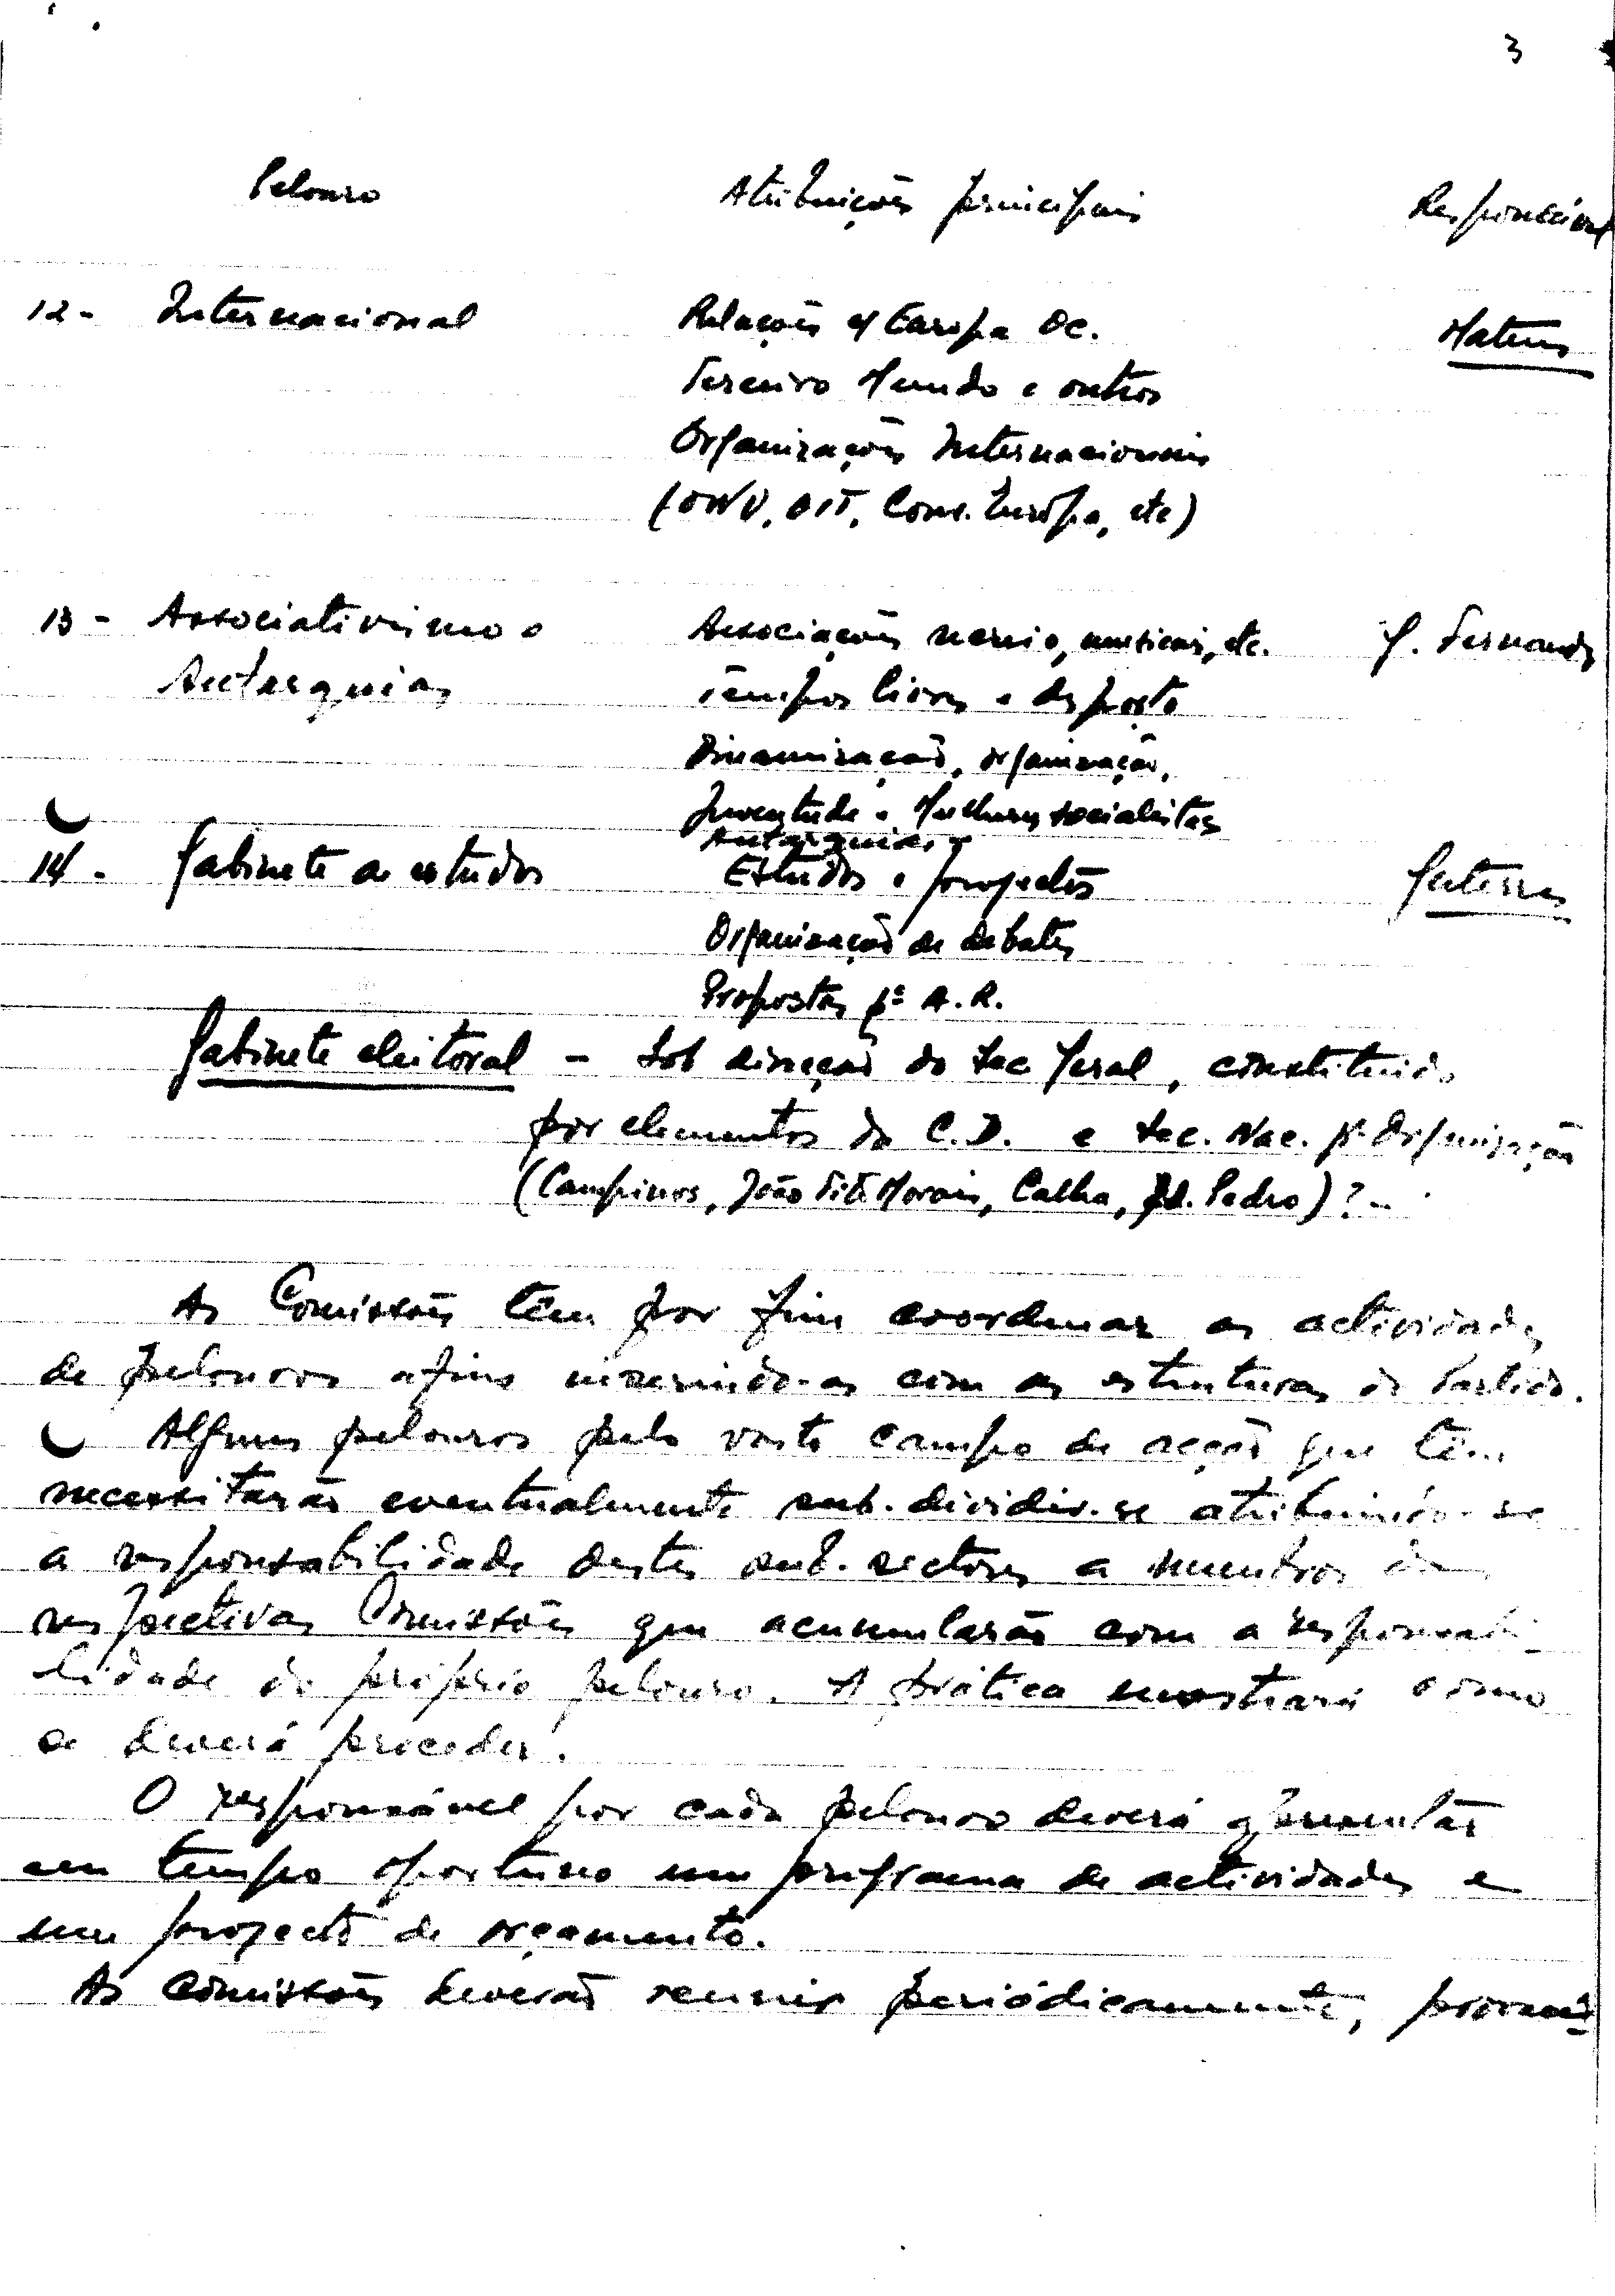 3
Pelouro Atribuições principais Responsável
12 - Internacional Relações c/ Europa Oc. Mateus
Terceiro Mundo e outros
Organizações Internacionais
(ONU, OIT, Cons. Europa, etc)
13 - Associativismo e Associações recreio, musicais, etc. G. Fernandes
Autarquias Tempos livres e desporto
Dinamização, organização,
Juventude e Mulheres socialistas
Autarquias
14 - Gabinete de estudos Estudos e projectos Guterres
Organização de debates
Propostas pª A.R.
Gabinete eleitoral - Sob direcção do Sec Geral, constituido
por elementos da C.D. e Sec. Nac. pª Organização
(Campinos, João Tito Morais, Calha, Ed. Pedro) ? -
As Comissões têm por fim coordenar as actividades
de pelouros afins inserindo-as com as estruturas do Partido.
Alguns pelouros pelo vasto campo de acção que têm
necessitarão eventualmente sub-dividir-se atribuindo-se
a responsabilidade destes sub-sectores a membros das
respectivas Comissões que acumularão com a responsabi-
lidade do próprio pelouro. A prática mostrará como
se deverá proceder.
O responsável por cada pelouro deverá apresentar
em tempo oportuno um programa de actividades e
um projecto de orçamento.
As Comissões deverão reunir periódicamente,